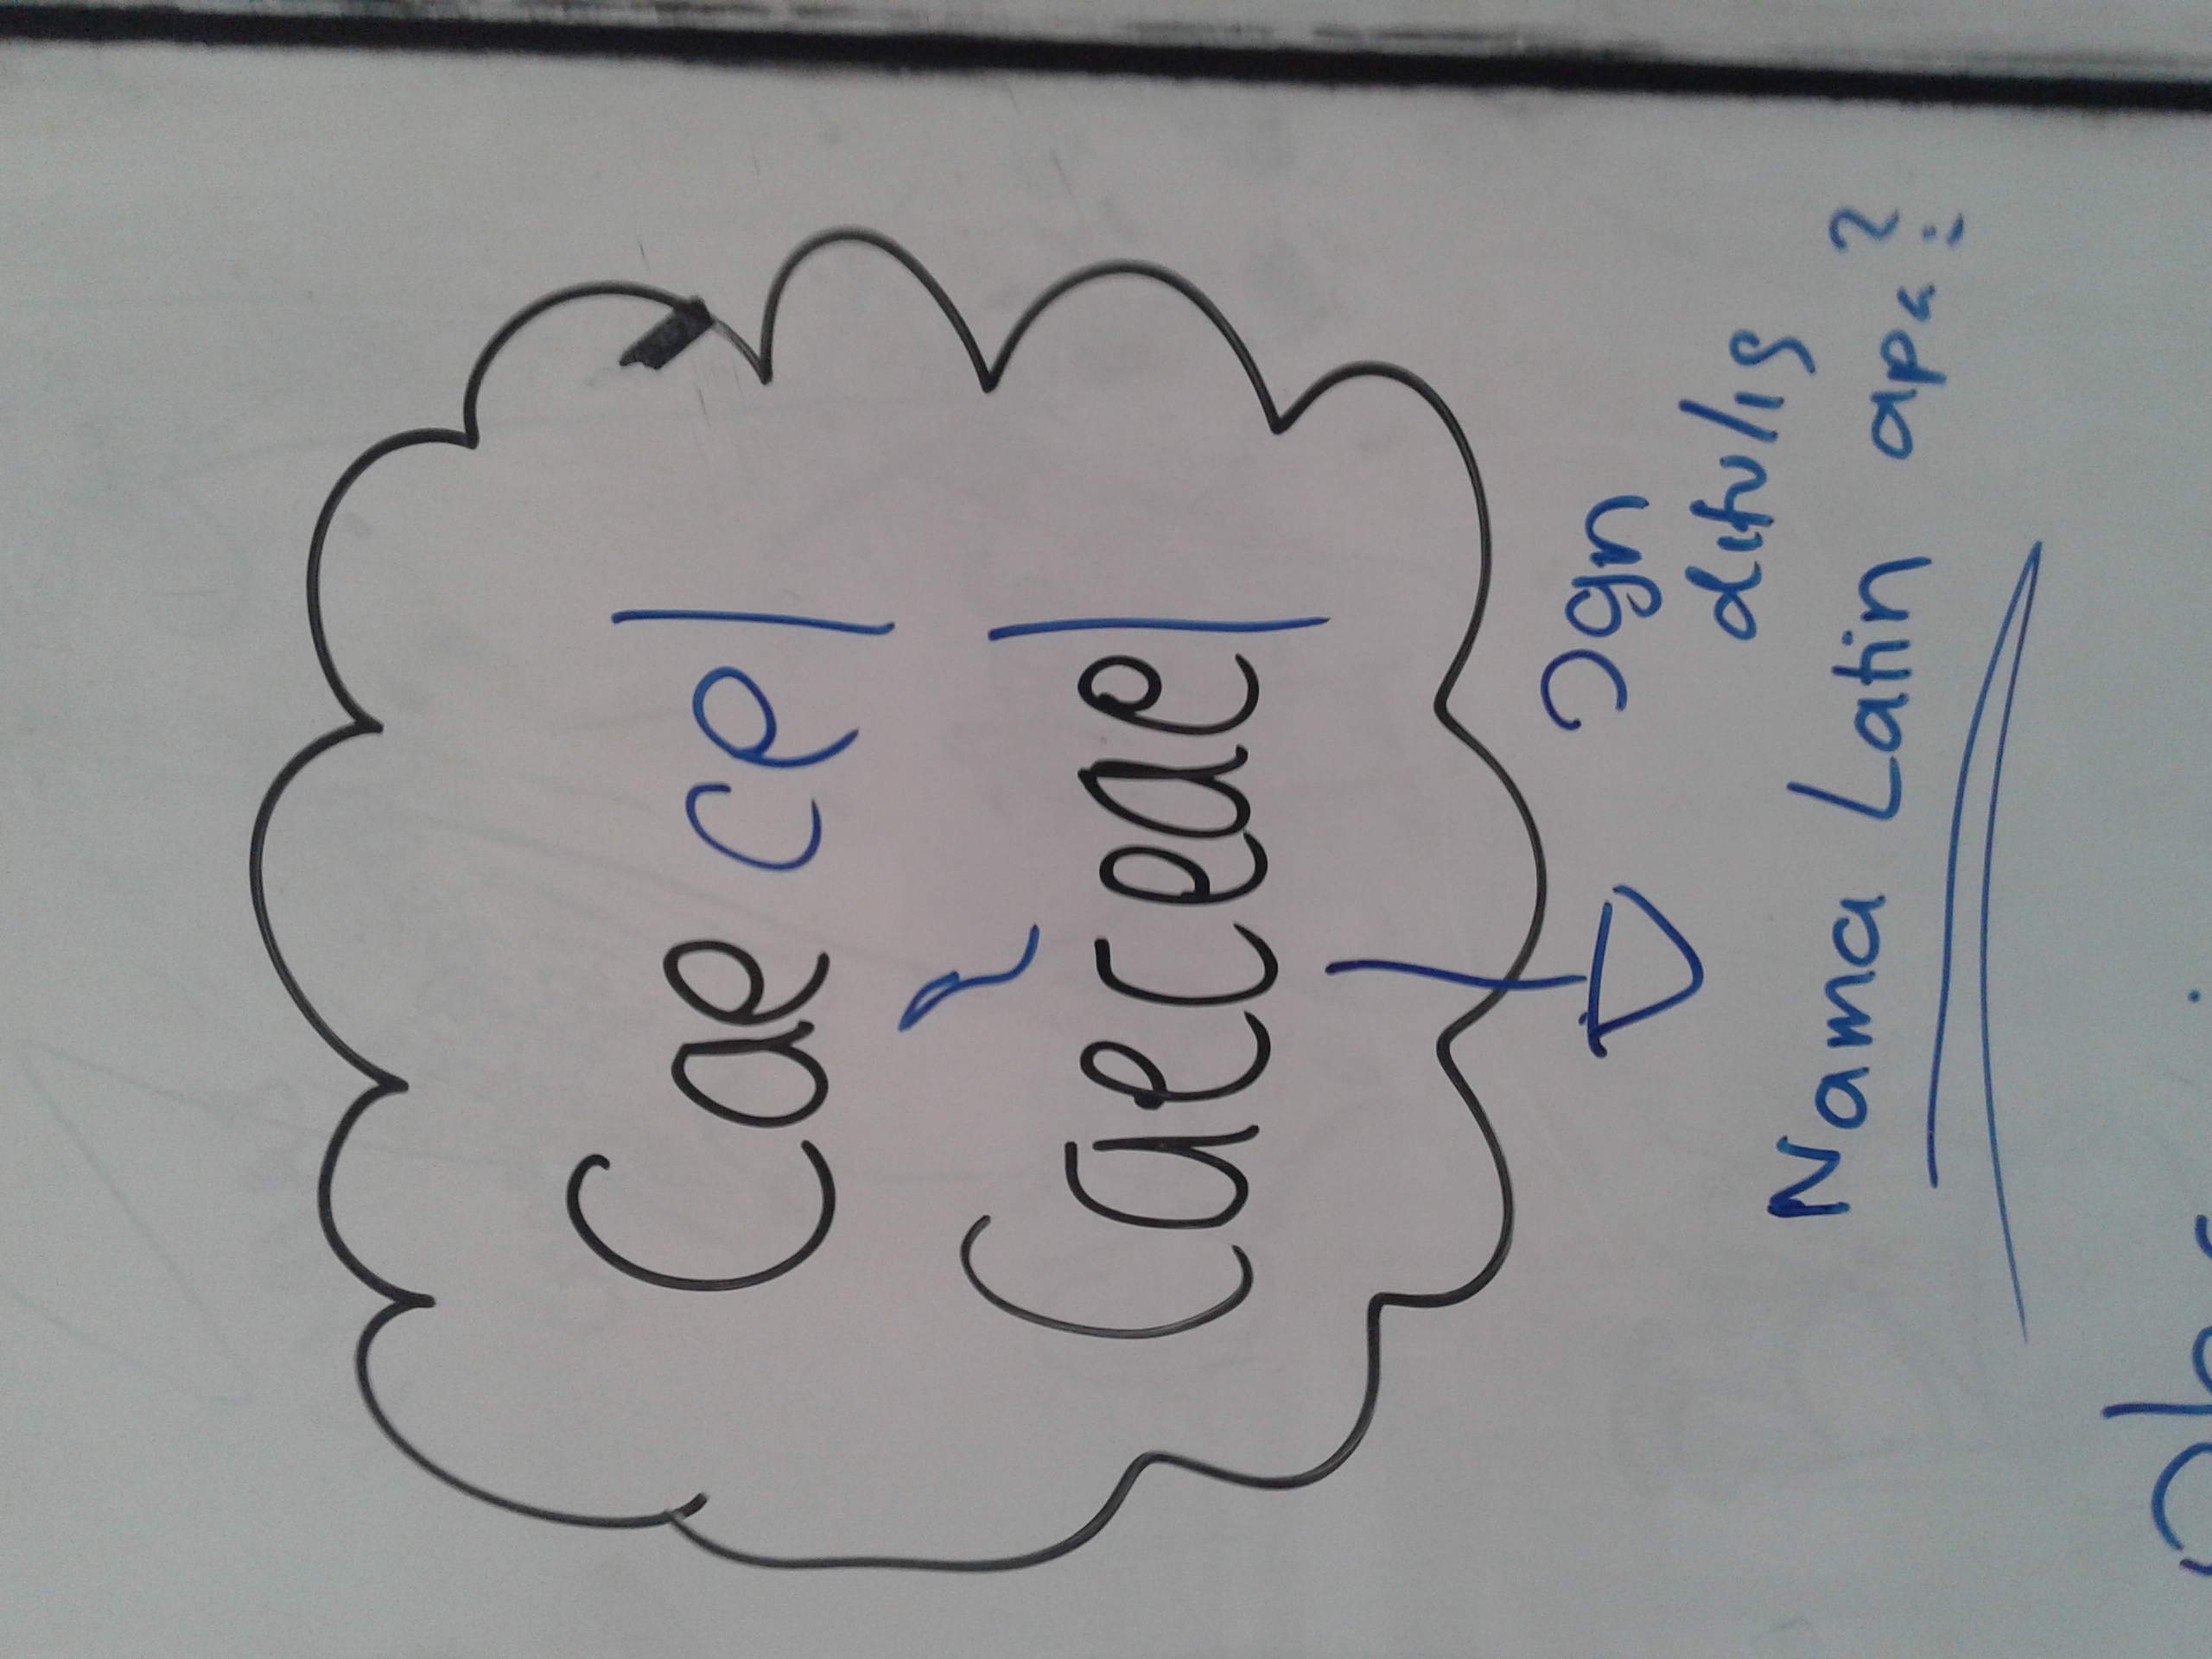 Cae cel
Caeceael
Jgn
ditulis
Nama Latin apa?